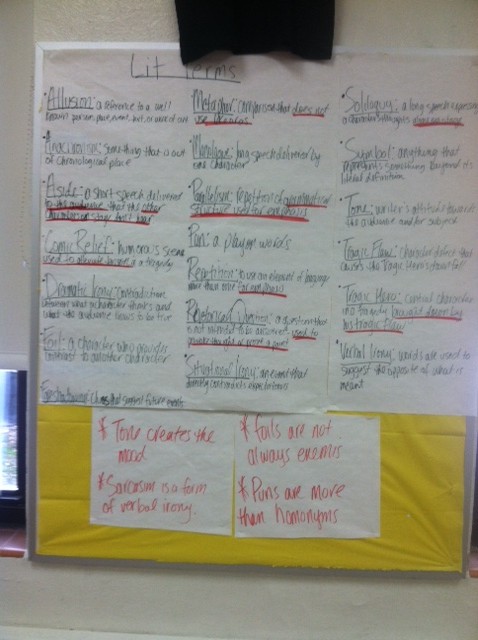 Lit Terms
Allusion: a reference to a well
known person, place, event, text, or work of art
Anachronism: something that is out
of chronological place
Aside: a short speech delivered
to the audience that the other
characters on stage can't hear
Comic Relief: humorous scene
used to alleviate in a tragedy
Dramatic Irony: contradiction
between what a character thinks and
what the audience knows to be true
Foil: a character who provides
contrast to another character
Foreshadowing: clues that suggest future events
Metaphor: comparison that does not
use
Monologue: long speech delivered by
one character
Parallelism: Repetition of grammatical
structure used for emphasis
Pun: a play on words
Repetition: to use an element of language
more than once for emphasis
Rhetorical Question: a question that
is not intended to be answered used to
provoke thought or prove a point
Situational Irony: an event that
directly contradicts expectations
Soliloquy: a long speech expressing
a character's thoughts on stage
Symbol: anything that
represents something beyond its
literal definition
Tone: writer's attitude towards
the audience and/or subject
Tragic Flaw: character defect that
causes the Tragic Hero's downfall
Tragic Hero: central character
in a tragedy brought down by
his tragic flaw
Verbal Irony: words are used to
suggest the opposite of what is
meant
* Tone creates the
mood
* Sarcasm is a form
of verbal irony.
* foils are not
always enemis
* Puns are more
than homonyms